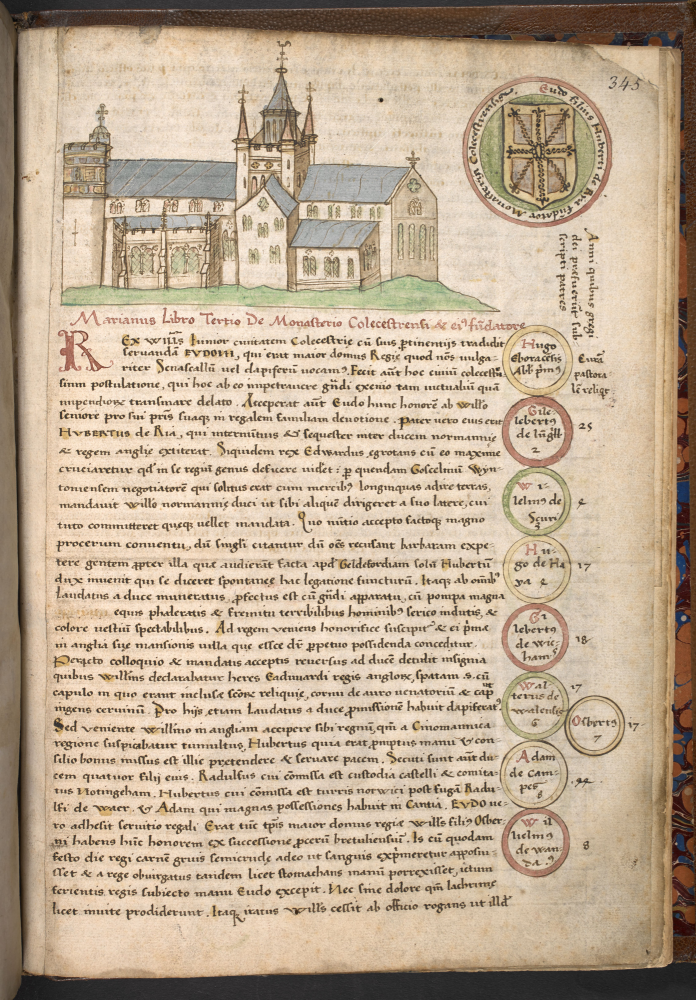 345
Eudo filius Huberti de Ria fūdator Monasterii Colecestrensis.
Anni quibus gregi
dei prefuerūt sub
scripti patres
Marianus Libro Tertio De Monasterio Colecestrensi & ei⁹ fūdatore
REx Willꝰs Iunior ciuitatem Colecestrie cū suis ꝑtinentijs tradidit
seruandā EVDONI, qui erat maior domus Regie quod nōs vulga-
riter Senascallū uel dapiferū uocam⁹. Fecit aūt hoc ciuiū colecestrēsium
postulatione, qui hoc ab eo impetrauere
transmare delato. Acceperat aūt Eudo hunc honorē ab willo
seniore pro sui pris suaqꝫ in regalem familiam deuotione. Pater uero eius erat
HVBERTUS de Ria, qui internūtius & sequester inter ducem normannie
& regem anglie extiterat. Siquidem rex Edwardus, egrotans cū eo maxime
cruciaretur qd̄ in se regiū genus deficere uidet: ꝑ quendam Goscelinū Wyn-
toniensem negotiatorē qui solitus erat cum mercib⁹ longinquas adire terras,
mandauit willo normannie duci ut sibi aliquē dirigeret a suo latere, cui
tuto committeret queqꝫ uellet mandata. Quo nūtio accepto factoqꝫ magno
procerum conuentu, dū singli citantur dū oēs recusant barbaram expe-
tere gentem ꝓpter illa que audierāt facta apd̄ Geldefordiam solū Hubertū
dux inuenit qui se diceret spontanee hac legatione functurū. Itaqꝫ ab omīb⁹
Laudatus a duce muneratus, ꝓfectus est cū grādi apparatu, cū pompa magna
equis phaleratis & fremitu terribilibus hominib⁹ serico indutis, &
colore uestiū spectabilibus. Ad regem veniens honorifice suscipit & ei
in anglia sue mansionis uilla que esse dn̄ ꝑpetuo possidenda conceditur.
Peracto colloquio & mandatis acceptis reuersus ad ducē detulit insignia
quibus Willm̄s declarabatur heres Eadwardi regis anglorꝫ, spatam .s. cū
capulo in quo erant incluse scōꝝ reliquie, cornu de auro uenatoriū & cap
ingens ceruinū. Pro hijs etiam Laudatus a duce ꝓmissionē habuit dapiferat⁹.
Sed veniente willmo in angliam accipere sibi regnū, qm̄ a Cinomannica
regione suspicabatur tumultus, Hubertus quia erat ꝓmptus manu & con-
silio bonus missus est illic pretendere & seruare pacem. Secuti sunt aūt du-
cem quatuor filij eius. Radulfus cui cōmissa est custodia castelli & comita-
tus Notingeham. Hubertus cui cōmissa est turris norwici post fugā Radu-
lfi de waer. & Adam qui magnas possessiones habuit in Cantia. EVDO ue-
ro adhesit seruitio regali Erat tūc tp̄is maior domus regie Wills fili⁹ Osber-
ni habens hūc honorem ex successione ꝓcerū bretuliensiū. Is cū quodam
festo die regi carnē gruis semicrudā adeo ut sanguis exprimeretur apposui-
sset & a rege obiurgatus tandem licet stomachans manū porrexisset, ictum
ferientis regis subiecto manu Eudo excepit. Nec sine dolore qm̄ lachrime
licet inuite prodiderunt. Itaqꝫ iratus Wills cessit ab officio rogans ut illd̄
Hugo
Eboracēsis
Abb. pm⁹
Curā
pastora
lē religꝫ
Gile
lebert⁹
2
25
Wi-
lelm⁹ de
Scuri
3
Hu-
go de Ha
ya 4
17
Gi
lebert⁹
de wic-
ham 5
18
Wal-
terius de
walensis
6
17
Osbert⁹
7
17
Adam
de Cam-
pes 8
44
Wil
lielm⁹
de wan-
da 9
8